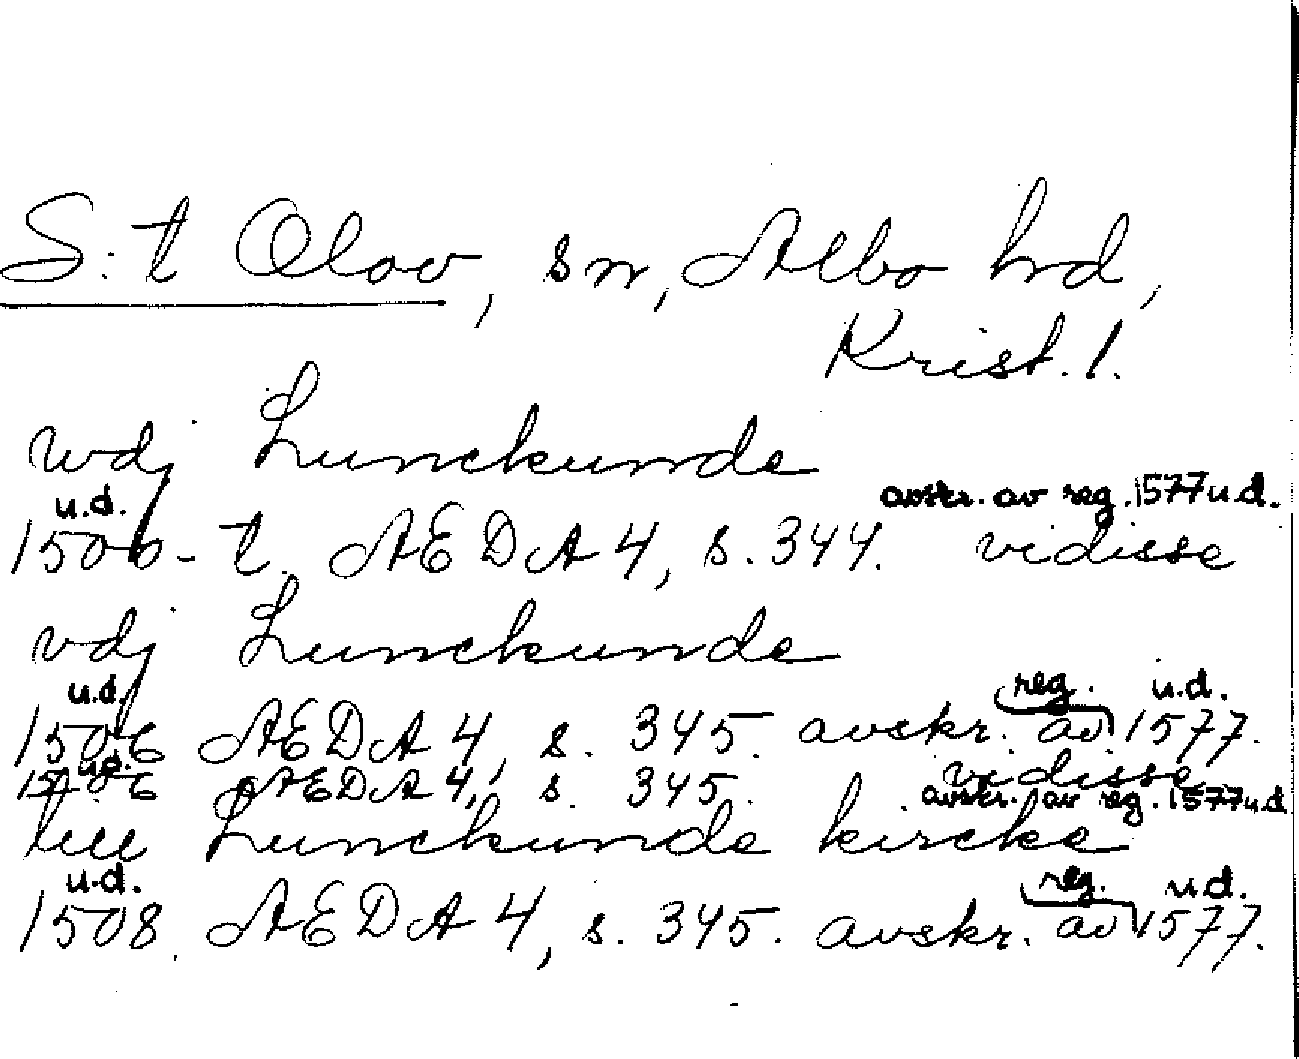 S:t Olov, sn, Albo hd,
Krist. l.
wdj Lunckunde
u.d. avskr. av reg. 1577 u.d.
1506-t. AEDA 4, s. 344. vidisse
vdj Lunckunde
u.d. reg. u.d.
1506 AEDA 4, s. 345. avskr. av 1577.
u.d. vidisse
1506 AEDA 4, s. 345. avskr. av reg. 1577 u.d.
till Lunckunde kircke
u.d. reg. u.d.
1508 AEDA 4, s. 345. avskr. av 1577.